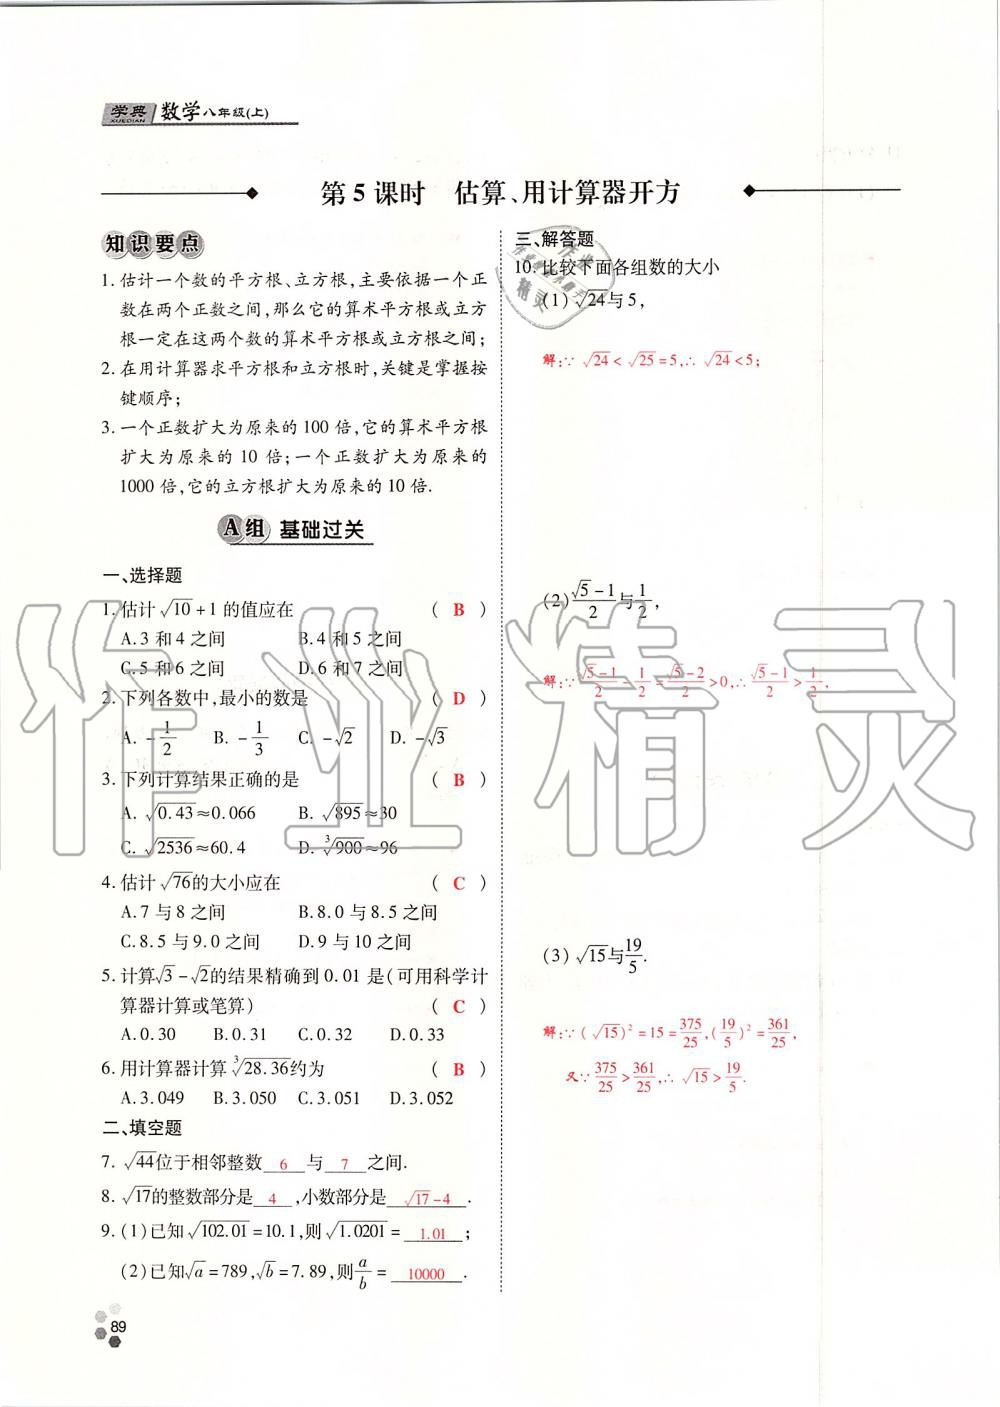 学典 XUEDIAN 数学八年级(上)
第5课时 估算、用计算器开方
知识要点
1. 估计一个数的平方根、立方根,主要依据一个正
数在两个正数之间,那么它的算术平方根或立方
根一定在这两个数的算术平方根或立方根之间;
2. 在用计算器求平方根和立方根时,关键是掌握按
键顺序;
3. 一个正数扩大为原来的 100 倍,它的算术平方根
扩大为原来的 10 倍;一个正数扩大为原来的
1000 倍,它的立方根扩大为原来的 10 倍.
A组 基础过关
一、选择题
1. 估计 √10+1 的值应在 ( B )
A.3 和 4 之间 B.4 和 5 之间
C.5 和 6 之间 D.6 和 7 之间
2. 下列各数中,最小的数是 ( D )
A. -1/2 B. -1/3 C. -√2 D. -√3
3. 下列计算结果正确的是 ( B )
A. √0.43≈0.066 B. √895≈30
C. √2536≈60.4 D. ³√900≈96
4. 估计 √76的大小应在 ( C )
A.7 与 8 之间 B.8.0 与 8.5 之间
C.8.5 与 9.0 之间 D.9 与 10 之间
5. 计算√3-√2的结果精确到 0.01 是(可用科学计
算器计算或笔算) ( C )
A.0.30 B.0.31 C.0.32 D.0.33
6. 用计算器计算 ³√28.36约为 ( B )
A.3.049 B.3.050 C.3.051 D.3.052
二、填空题
7. √44位于相邻整数 6 与 7 之间.
8. √17的整数部分是 4 ,小数部分是 √17-4 .
9. (1)已知 √102.01=10.1,则 √1.0201= 1.01 ;
(2)已知√a=789,√b=7.89,则a/b= 10000 .
89
三、解答题
10. 比较下面各组数的大小
(1) √24与 5,
解:∵ √24<√25=5,∴ √24<5;
(2) (√5-1)/2与1/2,
解:∵(√5-1)/2-1/2=(√5-2)/2>0,∴(√5-1)/2>1/2.
(3) √15与19/5.
解:∵(√15)²=15=375/25,(19/5)²=361/25,
又∵375/25>361/25,∴ √15>19/5.
作业精灵